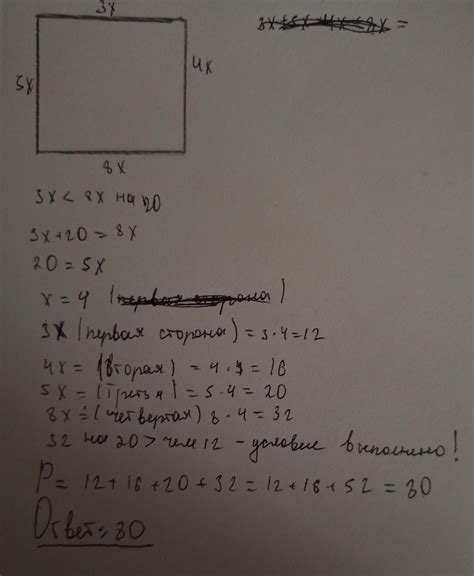 3x
5x
4x
8x
3x < 8x на 20
3x+20=8x
20=5x
x=4
3x (первая сторона) = 3·4=12
4x = (вторая) = 4·4=16
5x = (третья) = 5·4=20
8x = (четвертая) 8·4=32
32 на 20 > чем 12 - условие выполнено!
P= 12+16+20+32=12+16+52=80
Ответ: 80